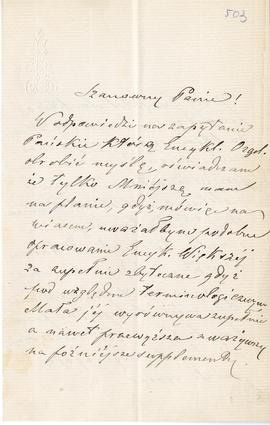 503
Szanowny Panie!
W odpowiedzi na zapytanie
Pańskie którą Encykl. Orgel.
obrobić myślę, oświadczam
że tylko Mniejszą mam
na planie, gdyż mówiąc na
wiasem, uważałbym podobne
opracowanie Encyk. Większej
za zupełnie zbyteczne gdyż
pod względem terminologicznym
Mała jej wyrównywa zupełnie
a nawet przewyższa zważywszy
na późniejsze supplementy.